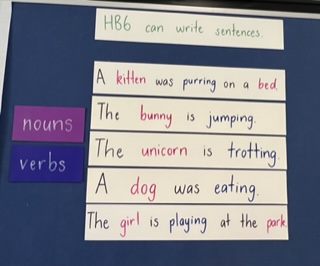 HB6 can write sentences.
A kitten was purring on a bed
The bunny is jumping.
nouns
The unicorn is trotting.
verbs
A dog was eating.
The girl is playing at the park